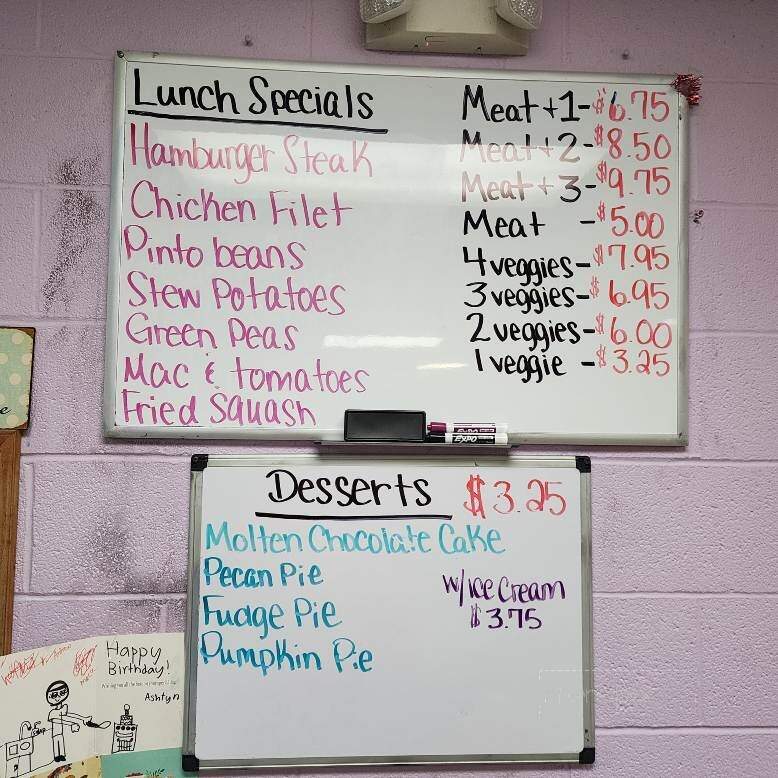 Lunch Specials
Hamburger Steak
Chicken Filet
Pinto beans
Stew Potatoes
Green Peas
Mac & tomatoes
Fried Squash
Meat +1-$6.75
Meat +2-$8.50
Meat +3-$9.75
Meat - $5.00
4 veggies-$7.95
3 veggies-$6.95
2 veggies-$6.00
1 veggie -$3.25
EXPO
EXPO
Desserts $3.25
Molten Chocolate Cake
Pecan Pie
Fudge Pie
Pumpkin Pie
w/ice Cream
$3.75
Happy
Birthday!
Ashtyn
e